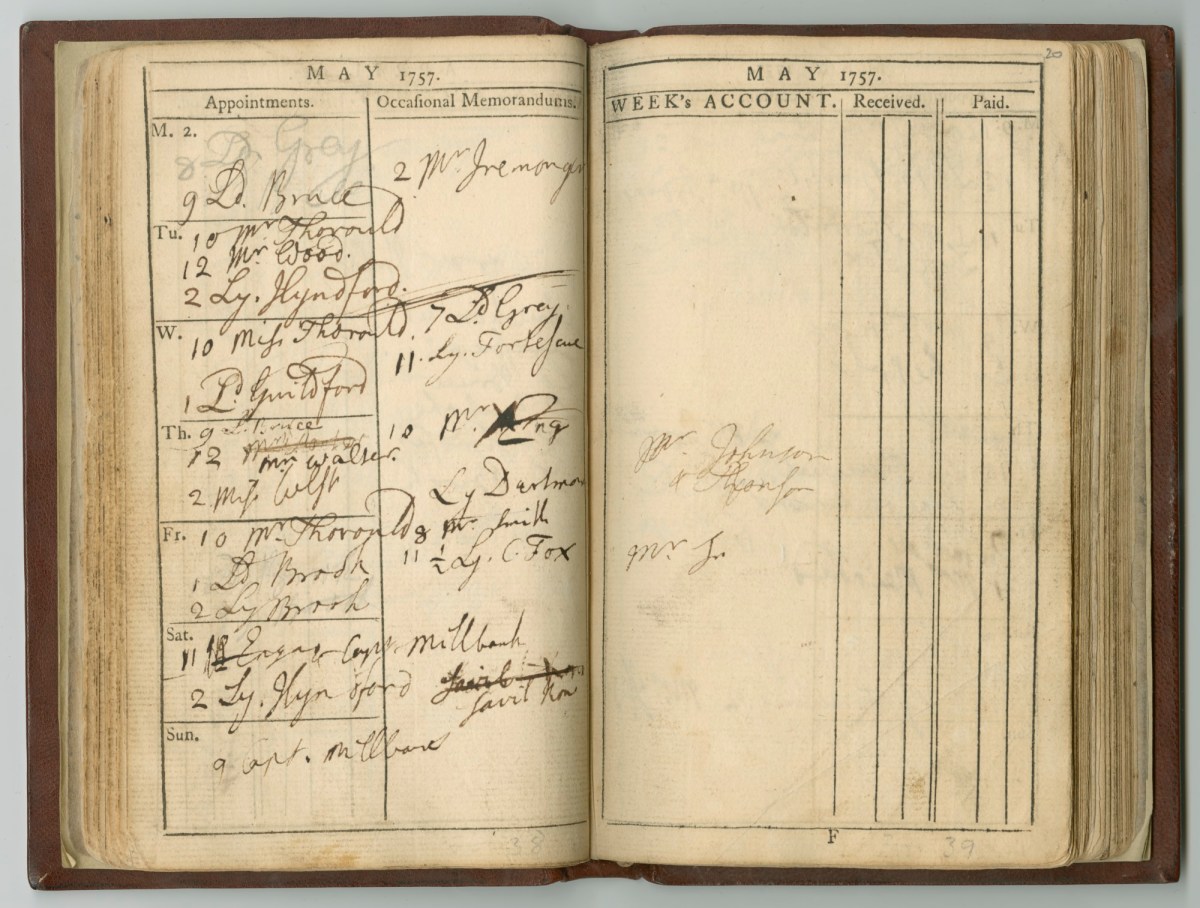 MAY 1757.
Appointments.
Occasional Memorandums.
M. 2.
8 Ld. Grey
9 Ld. Bruce
2 Mr. Iremonger
Tu. 10 Mr Thorould
12 Mr. Wood.
2 Ly. Hyndford.
W.
10 Miss Thorould.
1 Ld. Guildford
7 Ld Grey.
11. Ly. Fortescue
Th. 9 L. Bruce
12
Mr Walter.
2 Miss
10 Mr. King
Ly Dartmou
Fr. 10 Mr. Thorould
1 Ld Brook
2 Ly Brook
8 Mr. Smith
11 1/2 Ly. C. Fox
Sat.
11 Capt. Millbank
2 Ly. Hynford
Savil Row
Sun.
9 Capt. Millbank
38
20
MAY 1757.
WEEK's ACCOUNT.
Received.
Paid.
Mr. Johnson
Mr. Jr.
F
39